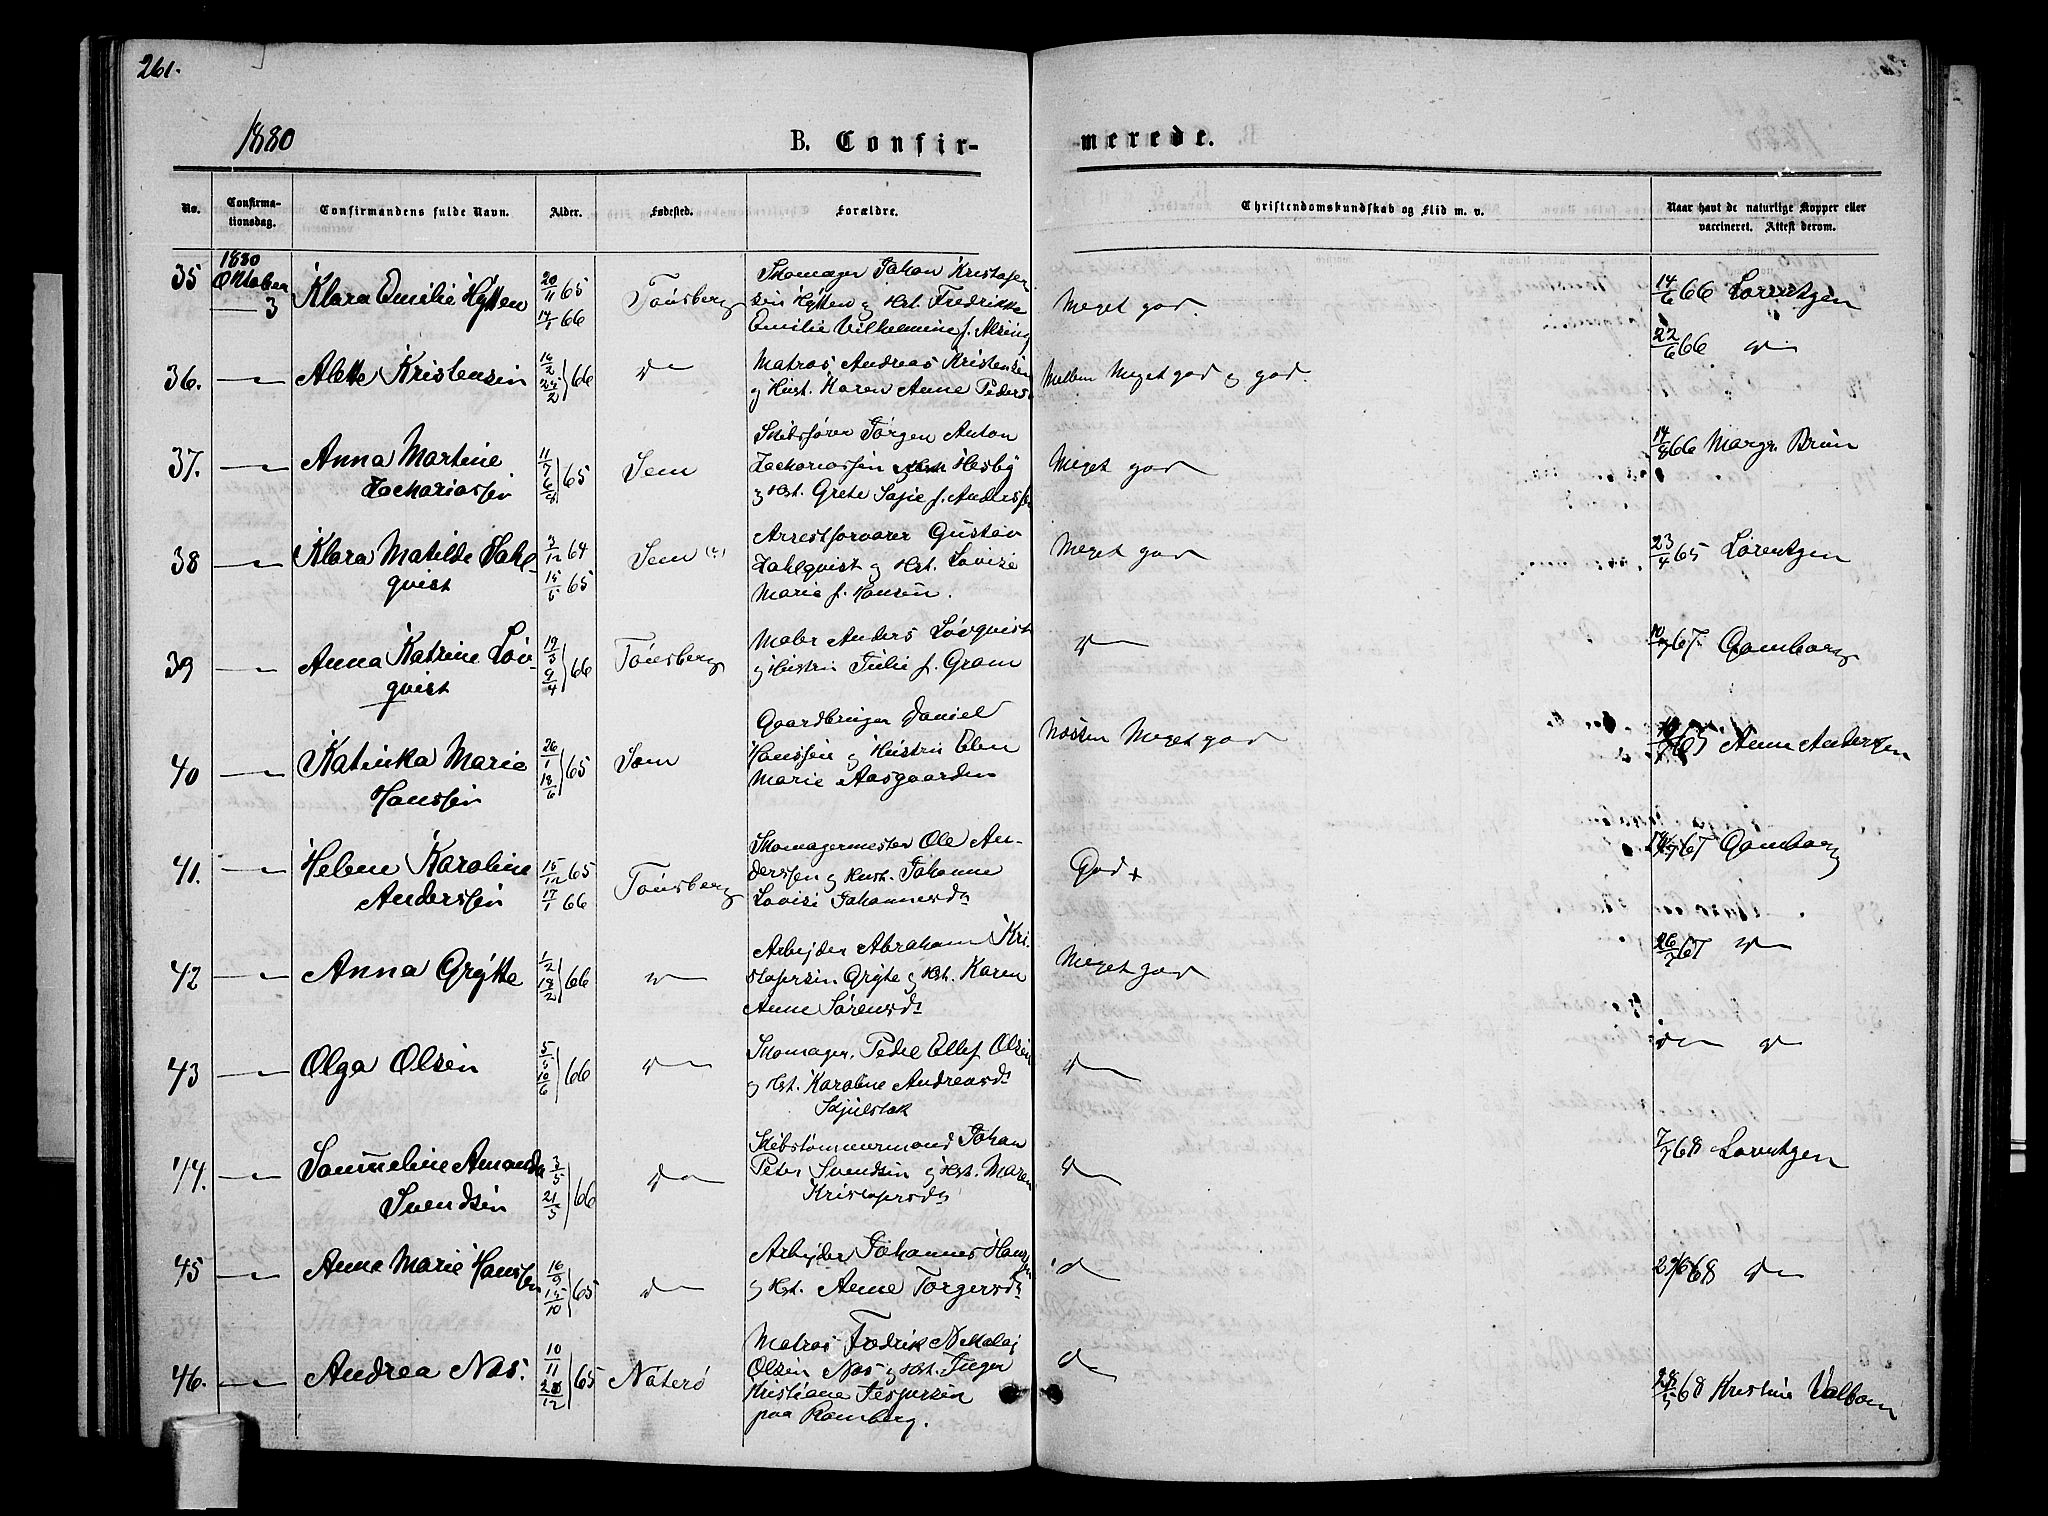 261.
1880
B. Confir-
merede.
No.
Confirma-
tionsdag.
Confirmandens fulde Navn.
Alder.
Fødested.
Forældre.
Christendomskundskab og Flid m. v.
Naar havt de naturlige Kopper eller
vaccineret. Attest derom.
35
1880
Oktober
3
Klara Emilie Hytten
20/11 65
14/1 66
Tönsberg
Skomager Johan Kristofer
sen Hytten og Hst. Fredrikke
Emilie Vilhelmine f. Alsing
Meget god.
14/6 66 Lorentzen
36.
Alette Kristensen
16/2
66
Do
Matros Andreas Kristensen
og Hust. Karen Anne Peders
Mellem Meget god og god.
22/6 66 Do
37.
Anna Martine
Zachariassen
11/7
65
Sem
Skibsfører Jörgen Anton
Zachariassen Hesby
og Hst. Grete Sofie f. Anderssen
Meget god
14/8 66 Margr. Brun
38
Klara Matilde Dahl-
qvist
3/12 64
15/5 65
Sem
Arrestforvarer Gustav
Dahlqvist og Hst. Lovise
Marie f. Hansen.
Meget god
23/4 65 Lorentzen
39
Anna Katrine Löv-
qvist
19/3
9/4
66
Tönsberg
Maler Anders Lövqvist
og Hustru Julie f. Gram
Do
67 Gamborg
40
Katinka Marie
Hanssen
26/1
18/6
65
Sem
Gaardbruger Daniel
Hanssen og Hustru Elen
Marie Aasgaarden
Næsten Meget god
65 Anne Andersen
41.
Helene Karoline
Anderssen
15/12 65
17/1 66
Tönsberg
Skomagermester Ole An-
derssen og Hust. Johanne
Lovise Johannesd.
God+
67 Gamborg
42
Anna Gryte
1/2
18/2
66
Do
Arbejder Abraham Kri-
stofersen Gryte og Hst. Karen
Anne Sörensd.
Meget god
26/7 67 Do
43
Olga Olsen
5/5
10/6
66
Do
Skomager Peder Ellef Olsen
og Hst. Karoline Andreasd.
Skjelstak
Do
Do Do
44.
Sammeline Amanda
Svendsen
3/5
21/5
66
Do
Skibstömmermand Johan
Peter Svendsen og Hst. Maren
Kristofersd.
Do
7/7 68 Lorentzen
45
Anne Marie Hanssen
16/9
15/10
65
Do
Arbejder Johannes Hanssen
og Hst. Anne Torgersd.
Do
68 Do
46.
Andrea Nes.
10/11
65
Nöterö
Matros Fredrik Nikolaj
Olsen Nes og Hst. Inger
Kristiane Jespersen
paa Ramberg.
Do
28/5 68 Kristine Valbom